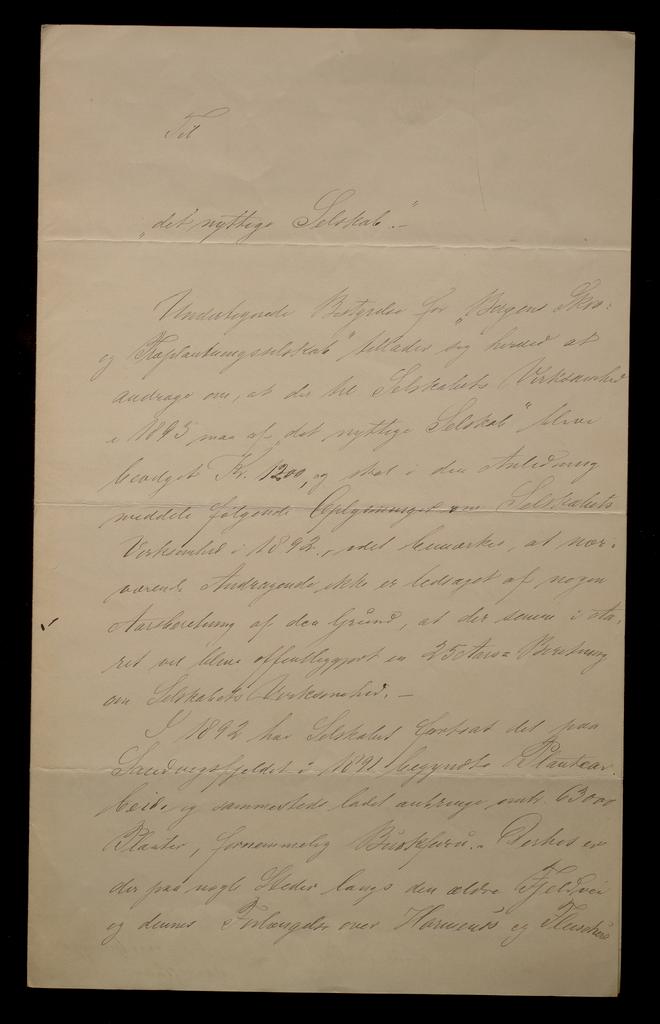 Til
"det nyttige Selskab".-
Undertegnede Bestyrelse for "Bergens Skov=
og Træplantningsselskab" tillader sig herved at
andrage om, at der til Selskabets Virksomhed
i 1893 maa af "det nyttige Selskab" blive
bevilget Kr. 1200, og skal i den Anledning
meddele følgende Oplysninger om Selskabets
Virksomhed i 1892, idet bemærkes, at nær=
værende Andragende ikke er ledsaget af nogen
Aarsberetning af den Grund, at der senere i Aa=
ret vil blive offentliggjort en 25 Aars= Beretning
om Selskabets Virksomhed. -
I 1892 har Selskabet fortsat det paa
Sandvigsfjeldet i 1891 begyndte Plantear=
beide og sammesteds ladet anbringe omtr. 63000
Planter, fornemmelig Buskfuru. - Derhos er
der paa nogle Steder langs den ældre Fjeldvei
og dennes Forlængelse over Hansens og